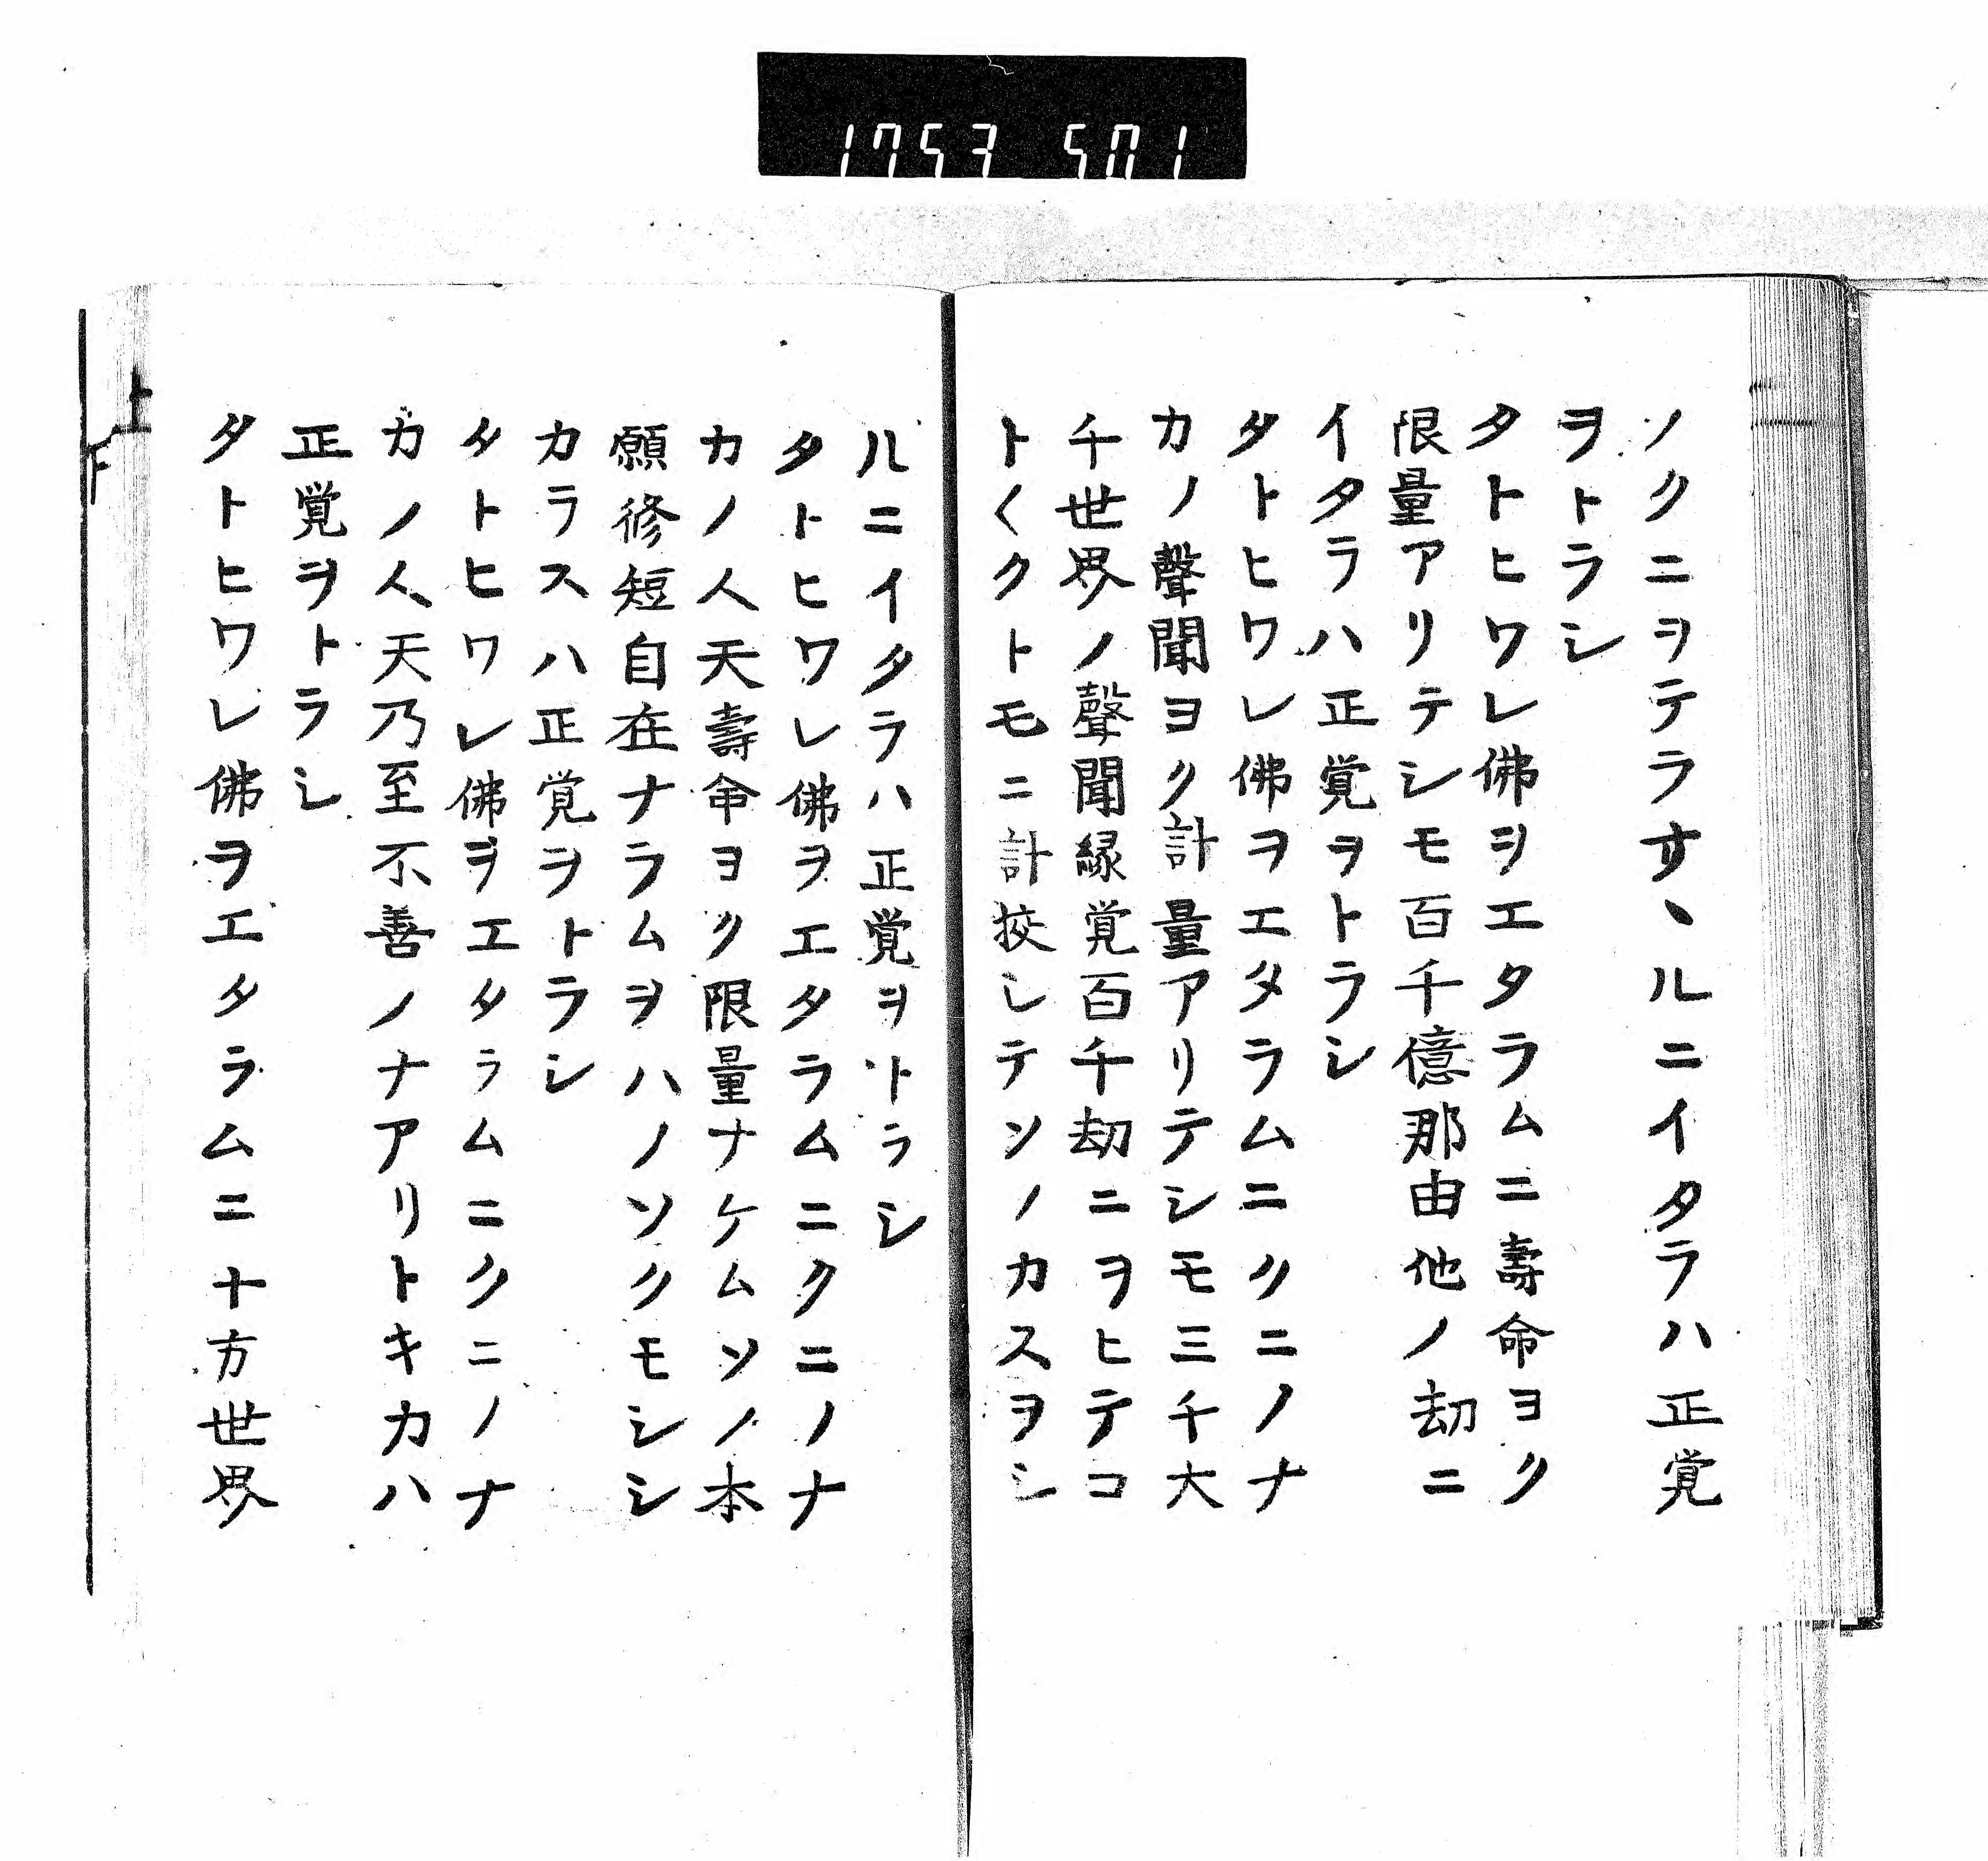 1753 501
ノクニヲテラサヽルニイタラハ正覚
ヲトラシ
タトヒワレ佛ヲエタラムニ壽命ヨク
限量アリテシモ百千億那由他ノ劫ニ
イタラハ正覚ヲトラシ
タトヒワレ佛ヲエタラムニクニノナ
カノ聲聞ヨク計量アリテシモ三千大
千世界ノ聲聞縁覚百千劫ニヲヒテコ
トくクトモニ計挍シテソノカスヲシ
ルニイタラハ正覚ヲトラシ
タトヒワレ佛ヲエタラムニクニノナ
カノ人天壽命ヨク限量ナケムソノ本
願修短自在ナラムヲハノソクモシシ
カラスハ正覚ヲトラシ
タトヒワレ佛ヲエタラムニクニノナ
カノ人天乃至不善ノナアリトキカハ
正覚ヲトラシ
タトヒワレ佛ヲエタラムニ十方世界
上
下